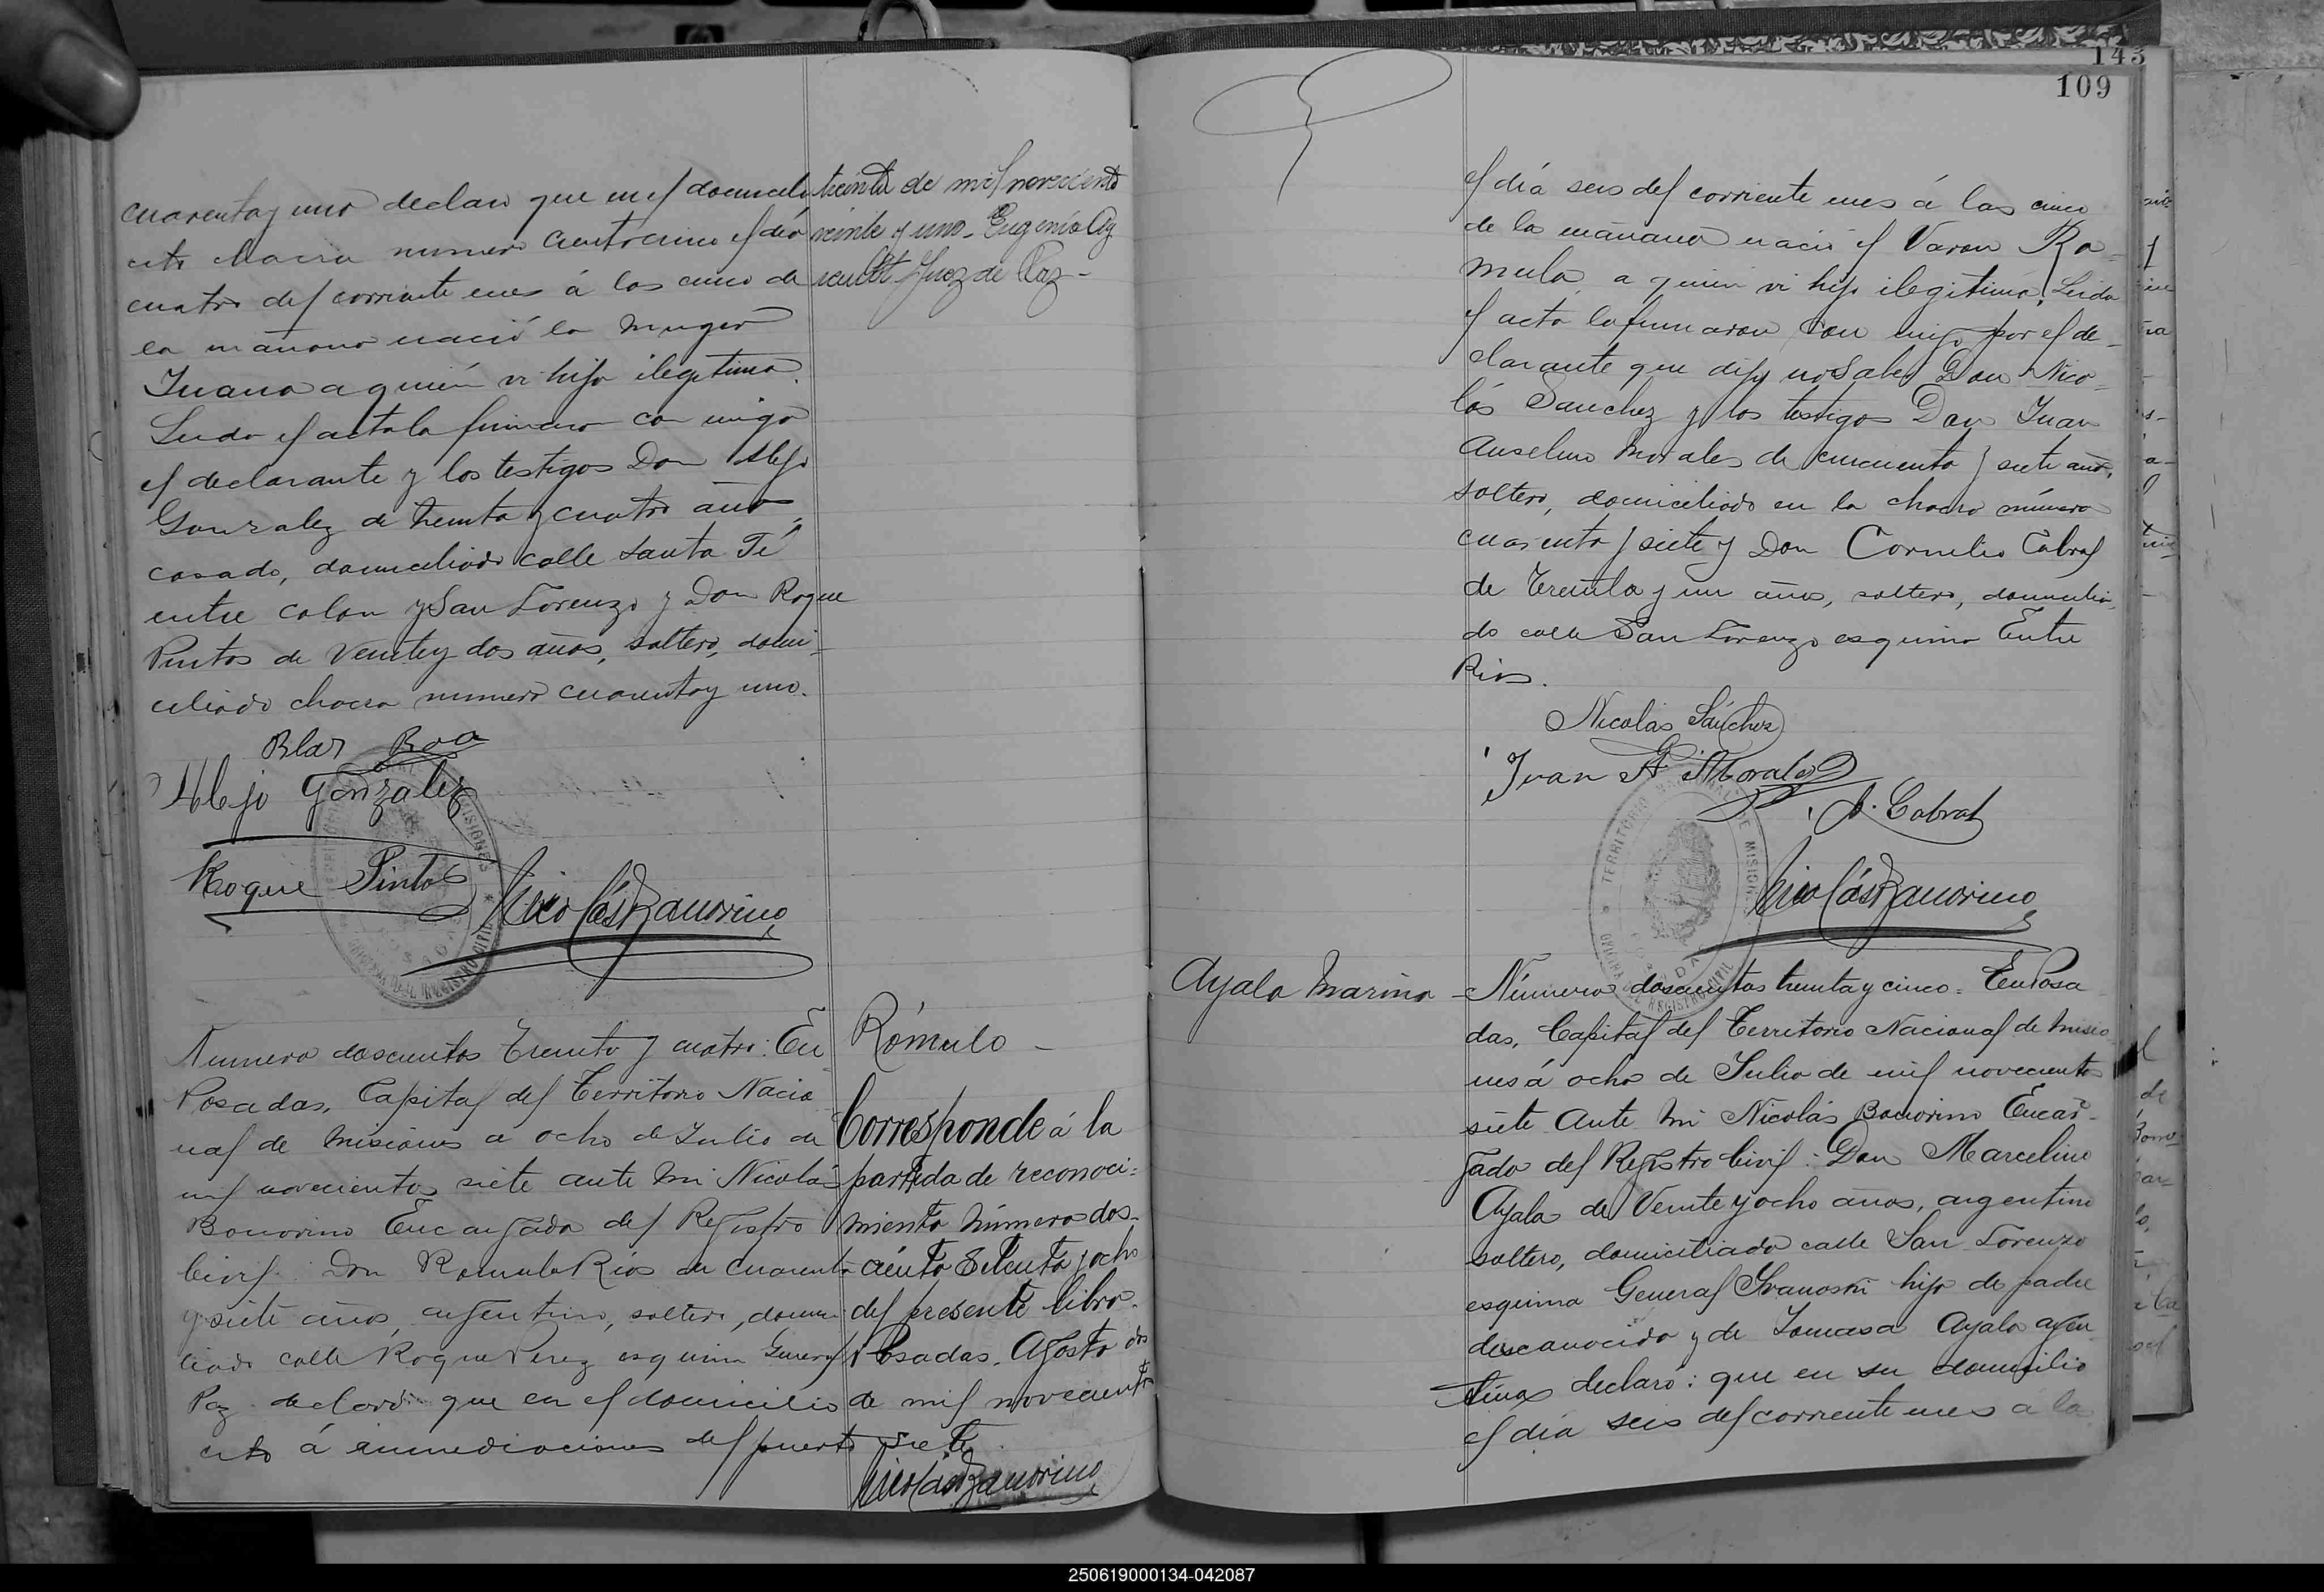 cuarenta y uno declaro que en el domicilio
cito chacra numero ciento cinco el día
cuatro del corriente mes á las cinco de
la mañana nació la muger
Juana a quién vi hija ilegitima.
Leida el acta la firmaron con migo
el declarante y los testigos Don Alejo
Gonzalez de treinta y cuatro años,
casado, domiciliado calle Santa Fé
entre Colon y San Lorenzo y Don Roque
Pintos de veinte y dos años, soltero, domi-
ciliado chacra numero cuarenta y uno.
Blas Boa
Alejo Gonzalez
Roque Pintos
Nicolás Bonorino
treinta de mil novecientos
veinte y uno. Eugenio
Juez de Paz-
Numero doscientos treinta y cuatro: En
Posadas, Capital del Territorio Nacio
nal de Misiones a ocho de Julio de
mil novecientos siete ante mi Nicolás
Bonorino Encargado del Registro
Civil. Don Romulo Rios de cuarenta
y siete años, argentino, soltero, domici
liado calle Roque Perez esquina General
Paz declaró que en el domicilio
cito á inmediaciones del puerto
Rómulo -
Corresponde á la
partida de reconoci=
miento número dos-
ciento setenta y ocho
del presente libro.
Posadas. Agosto dos
de mil novecientos
siete.
Nicolás Bonorino
143
109
el día seis del corriente mes á las cinco
de la mañana nació el Varon Ro=
mulo, a quien vi hijo ilegitimo. Leida
el acta la firmaron con migo por el de-
clarante que dijo no saber Don Nico-
lás Sanchez y los testigos Don Juan
Anselmo Morales de cincuenta y siete años,
soltero, domiciliado en la chacra número
cuarenta y siete y Don Cornelio Cabral
de treinta y un años, soltero, domicilia
do calle San Lorenzo esquina Entre
Rios.
Nicolas Sánchez
Juan A. Morales
C. Cabral
Nicolás Bonorino
TERRITORIO NACIONAL DE MISIONES
OFICINA DEL REGISTRO CIVIL
POSADAS
Ayala Marina
Número doscientos treinta y cinco. En Posa
das, Capital del Territorio Nacional de Misio
nes á ocho de Julio de mil novecientos
siete Ante mi Nicolás Bonorino Encar-
gado del Registro Civil: Don Marcelino
Ayala de Veinte y ocho años, argentino
soltero, domiciliado calle San Lorenzo
esquina General hijo de padre
desconocido y de Tomasa Ayala argen
tina declaró: que en su domicilio
el día seis del corriente mes a la
250619000134-042087